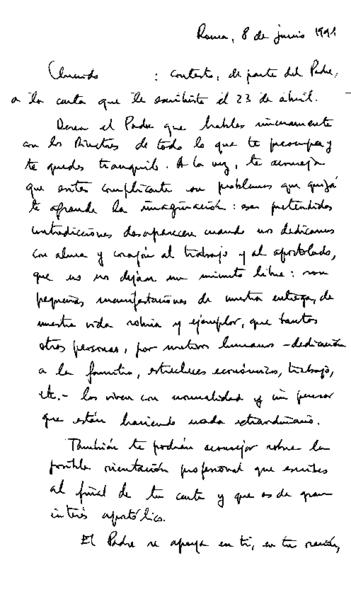 Roma, 8 de junio 1991
: contesto, de parte del Padre,
a la carta que le escribiste el 23 de abril.
Desea el Padre que hables sinceramente
con los Directores de todo lo que te preocupa y
te quedes tranquilo. A la vez, te aconseja
que evites complicarte con problemas que quizá
te agrande la imaginación: esas pretendidas
contradicciones desaparecen cuando nos dedicamos
con alma y corazón al trabajo y al apostolado,
que no nos dejan un minuto libre: son
pequeñas manifestaciones de nuestra entrega, de
nuestra vida sobria y ejemplar, que tantas
otras personas, por motivos humanos -dedicación
a la familia, estrecheces económicas, trabajo,
etc.- las viven con normalidad y sin pensar
que están haciendo nada extraordinario.
También te podrán aconsejar sobre la
posible orientación profesional que escribes
al final de tu carta y que es de gran
interés apostólico.
El Padre se apoya en ti, en tu oración,